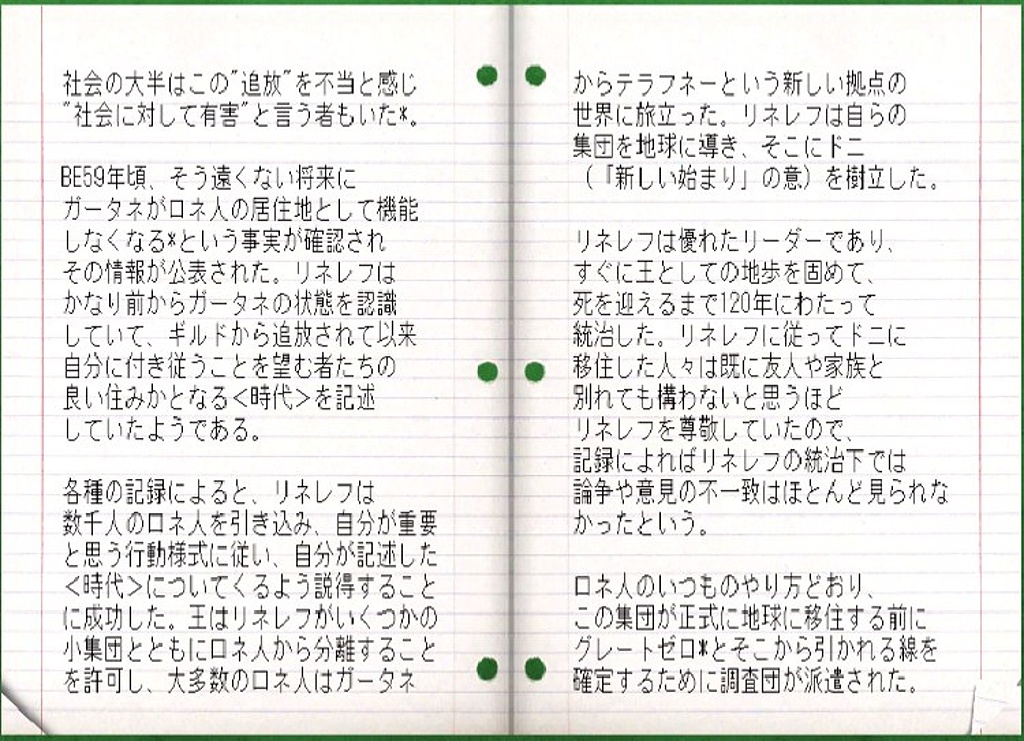 社会の大半はこの"追放"を不当と感じ
"社会に対して有害"と言う者もいた*。
BE59年頃、そう遠くない将来に
ガータネがロネ人の居住地として機能
しなくなる*という事実が確認され
その情報が公表された。リネレフは
かなり前からガータネの状態を認識
していて、ギルドから追放されて以来
自分に付き従うことを望む者たちの
良い住みかとなる<時代>を記述
していたようである。
各種の記録によると、リネレフは
数千人のロネ人を引き込み、自分が重要
と思う行動様式に従い、自分が記述した
<時代>についてくるよう説得すること
に成功した。王はリネレフがいくつかの
小集団とともにロネ人から分離すること
を許可し、大多数のロネ人はガータネ
からテラフネーという新しい拠点の
世界に旅立った。リネレフは自らの
集団を地球に導き、そこにドニ
（「新しい始まり」の意）を樹立した。
リネレフは優れたリーダーであり、
すぐに王としての地歩を固めて、
死を迎えるまで120年にわたって
統治した。リネレフに従ってドニに
移住した人々は既に友人や家族と
別れても構わないと思うほど
リネレフを尊敬していたので、
記録によればリネレフの統治下では
論争や意見の不一致はほとんど見られな
かったという。
ロネ人のいつものやり方どおり、
この集団が正式に地球に移住する前に
グレートゼロ*とそこから引かれる線を
確定するために調査団が派遣された。